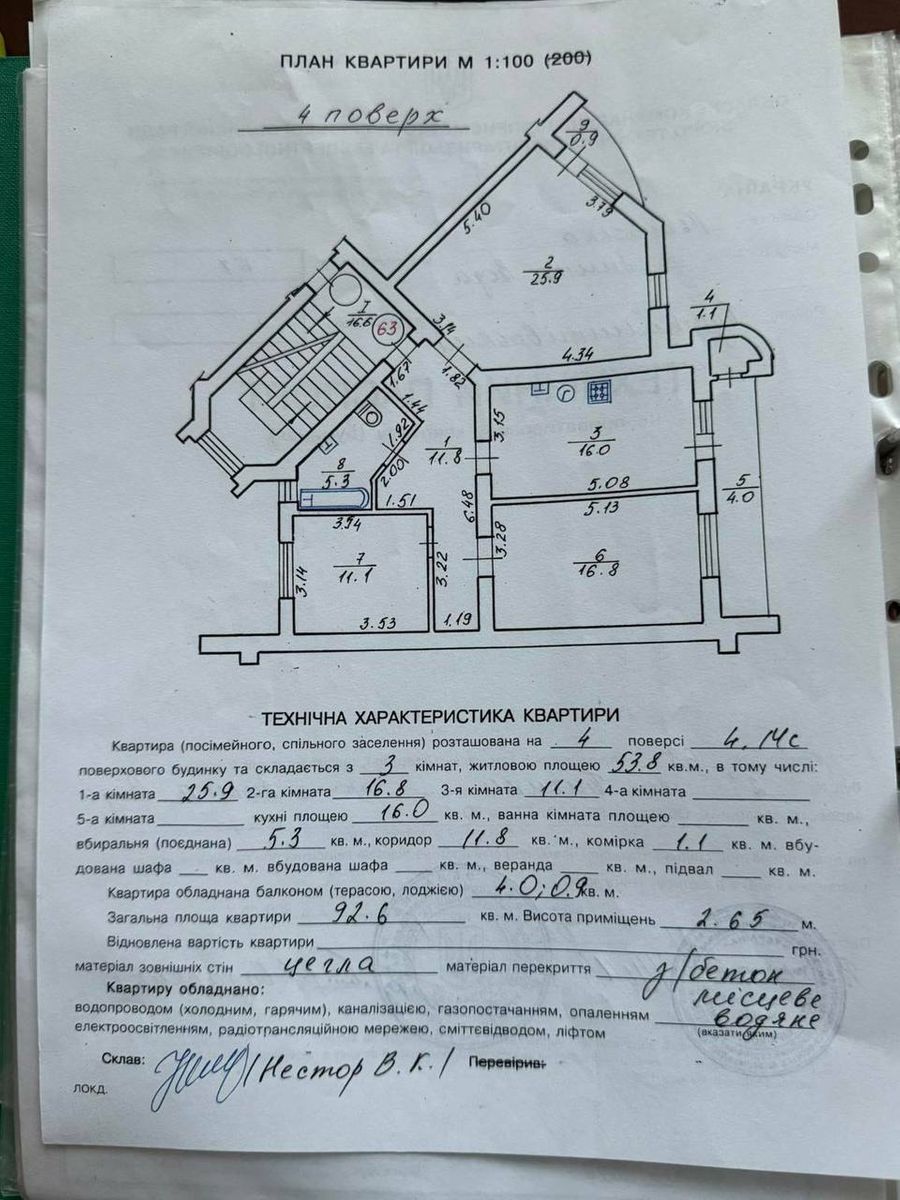 ПЛАН КВАРТИРИ М 1:100 (200)
4 поверх
9
0.9
3.79
5.40
2
25.9
4
1.1
I
16.6
63
3.14
1.82
4.34
1.67
1.44
1.92
2.00
1
11.8
3.15
Г
3
16.0
8
5.3
5.08
5
4.0
1.51
6.48
5.13
3.54
3.28
7
11.1
3.14
3.22
6
16.8
3.53
1.19
ТЕХНІЧНА ХАРАКТЕРИСТИКА КВАРТИРИ
Квартира (посімейного, спільного заселення) розташована на 4 поверсі 4,
поверхового будинку та складається з 3 кімнат, житловою площею 53.8 кв.м., в тому числі:
1-а кімната 25.9 2-га кімната 16.8 3-я кімната 11.1 4-а кімната
5-а кімната кухні площею 16.0 кв. м., ванна кімната площею кв. м.,
вбиральня (поєднана) 5.3 кв. м., коридор 11.8 кв. м., комірка 1.1 кв. м. вбу-
дована шафа кв. м. вбудована шафа кв. м., веранда кв. м., підвал кв. м.
Квартира обладнана балконом (терасою, лоджією) 4.0; 0.9 кв. м.
Загальна площа квартири 92.6 кв. м. Висота приміщень 2.65 м.
Відновлена вартість квартири грн.
матеріал зовнішніх стін цегла матеріал перекриття з/бетон
Квартиру обладнано: місцеве
водопроводом (холодним, гарячим), каналізацією, газопостачанням, опаленням водяне
електроосвітленням, радіотрансляційною мережею, сміттєвідводом, ліфтом (вказати яким)
Склав: /Нестор В.К./ Перевірив:
ЛОКД.